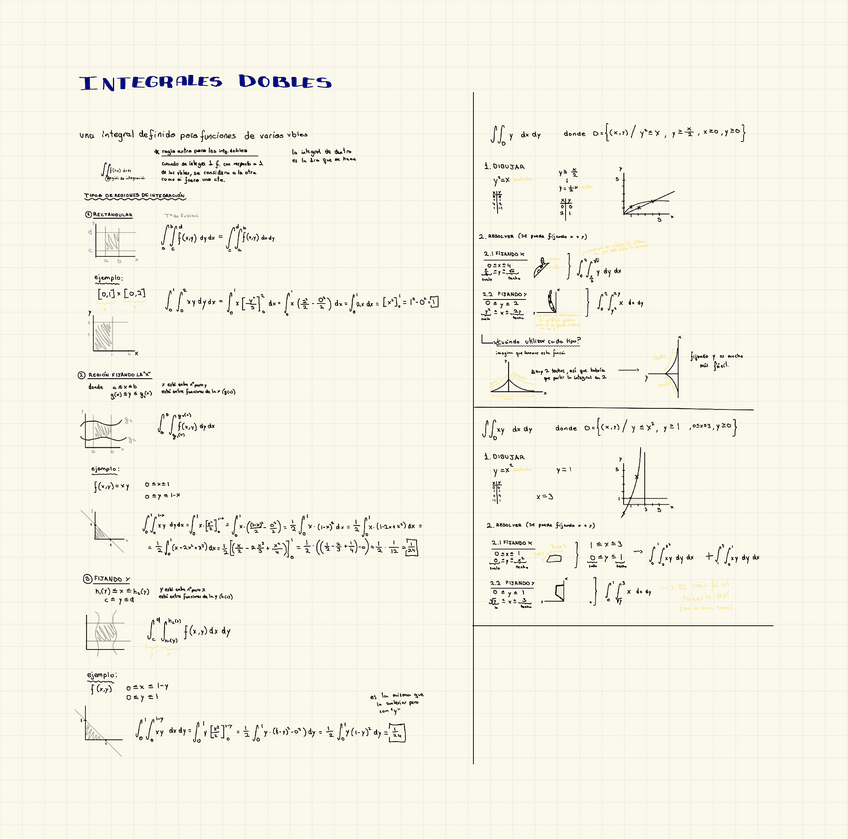 INTEGRALES DOBLES
una integral definida para funciones de varias vbles
* regla extra para las int. dobles
cuando se integra 1 f. con respecto a 1
de las vbles, se considera a la otra
como si fuera una cte.
la integral de dentro
es la 1ra que se hace
∬ f(x,y) dxdy
región de integración
TIPOS DE REGIONES DE INTEGRACIÓN
① RECTANGULAR
∫ₐᵇ∫_c^d f(x,y) dy dx = ∫_c^d∫ₐᵇ f(x,y) dx dy
ejemplo:
[0,1] x [0,2]
∫₀¹∫₀² xy dy dx = ∫₀¹ x [y²/2]₀² dx = ∫₀¹ x (2²/2 - 0²/2) dx = ∫₀¹ 2x dx = [x²]₀¹ = 1² - 0² = 1
② REGIÓN FIJANDO LA "X"
donde a ≤ x ≤ b
g₁(x) ≤ y ≤ g₂(x)
x está entre nº puro y
está entre funciones de la x (g(x))
∫ₐᵇ∫_{g₁(x)}^{g₂(x)} f(x,y) dy dx
ejemplo:
f(x,y) = xy
0 ≤ x ≤ 1
0 ≤ y ≤ 1-x
∫₀¹∫₀^{1-x} xy dy dx = ∫₀¹ x·[y²/2]₀^{1-x} = ∫₀¹ x·((1-x)²/2 - 0²/2) = 1/2 ∫₀¹ x·(1-x)² dx = 1/2 ∫₀¹ x·(1-2x+x²) dx =
= 1/2 ∫₀¹ (x-2x²+x³) dx = 1/2 [(x²/2 - 2x³/3 + x⁴/4)]₀¹ = 1/2 · ((1/2 - 2/3 + 1/4) - 0) = 1/2 · 1/12 = 1/24
③ FIJANDO Y
h₁(y) ≤ x ≤ h₂(y)
c ≤ y ≤ d
y está entre nº puro x
está entre funciones de la y (h(y))
∫_c^d∫_{h₁(y)}^{h₂(y)} f(x,y) dx dy
ejemplo:
f(x,y)
0 ≤ x ≤ 1-y
0 ≤ y ≤ 1
es lo mismo que
lo anterior pero
con "y"
∫₀¹∫₀^{1-y} xy dx dy = ∫₀¹ y [x²/2]₀^{1-y} = 1/2 ∫₀¹ y·(1-y)²-0²) dy = 1/2 ∫₀¹ y(1-y)² dy = 1/24
∬_D y dx dy donde D = {(x,y) / y² ≤ x, y ≥ x/2, x ≥ 0, y ≥ 0}
1. DIBUJAR
y² = x
y ≥ x/2
y = 1/2 x
x y
0 0
2 1
2. RESOLVER (se puede fijando x o y)
2.1 FIJANDO X
0 ≤ x ≤ 4
x/2 ≤ y ≤ √x
suelo techo
∫₀⁴∫_{x/2}^{√x} y dy dx
2.2 FIJANDO Y
0 ≤ y ≤ 2
y² ≤ x ≤ 2y
suelo techo
∫₀²∫_{y²}^{2y} x dx dy
¿Cuándo utilizar cada tipo?
imagina que tenemos esta función
hay 2 techos, así que habría
que partir la integral en 2
fijando y es mucho
más fácil.
∬_D xy dx dy donde D = {(x,y) / y ≤ x², y ≥ 1, 0≤x≤3, y ≥ 0}
1. DIBUJAR
y = x²
y = 1
x = 3
2. RESOLVER (se puede fijando x o y)
2.1 FIJANDO X
0 ≤ x ≤ 1
0 ≤ y ≤ x²
suelo techo
1 ≤ x ≤ 3
0 ≤ y ≤ 1
suelo techo
2.2 FIJANDO Y
0 ≤ y ≤ 1
√y ≤ x ≤ 3
techo
∫₀¹∫_{√y}³ x dx dy
es más fácil